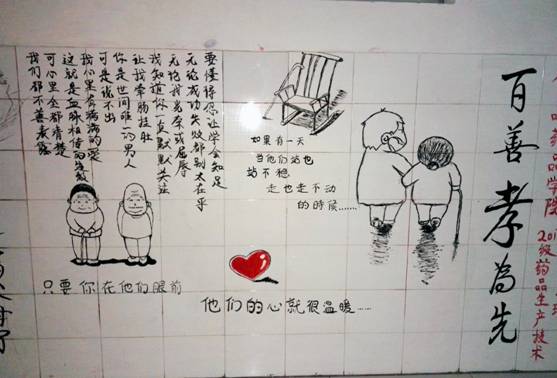 我们都不善表露
可心里全都清楚
这就是血脉相传的
我心里有满满的爱
可是说不出
你是世间唯一的男人
让我牵肠挂肚
我知道你一直默默关注
无论我光荣或屈辱
无论成功失败都别太在乎
要懂得忍让学会知足
如果有一天
当他们站也
站不稳
走也走不动
的時候……
只要你在他们眼前
他们的心就很温暖……
百善孝為先
药品学院
级药品生产技术